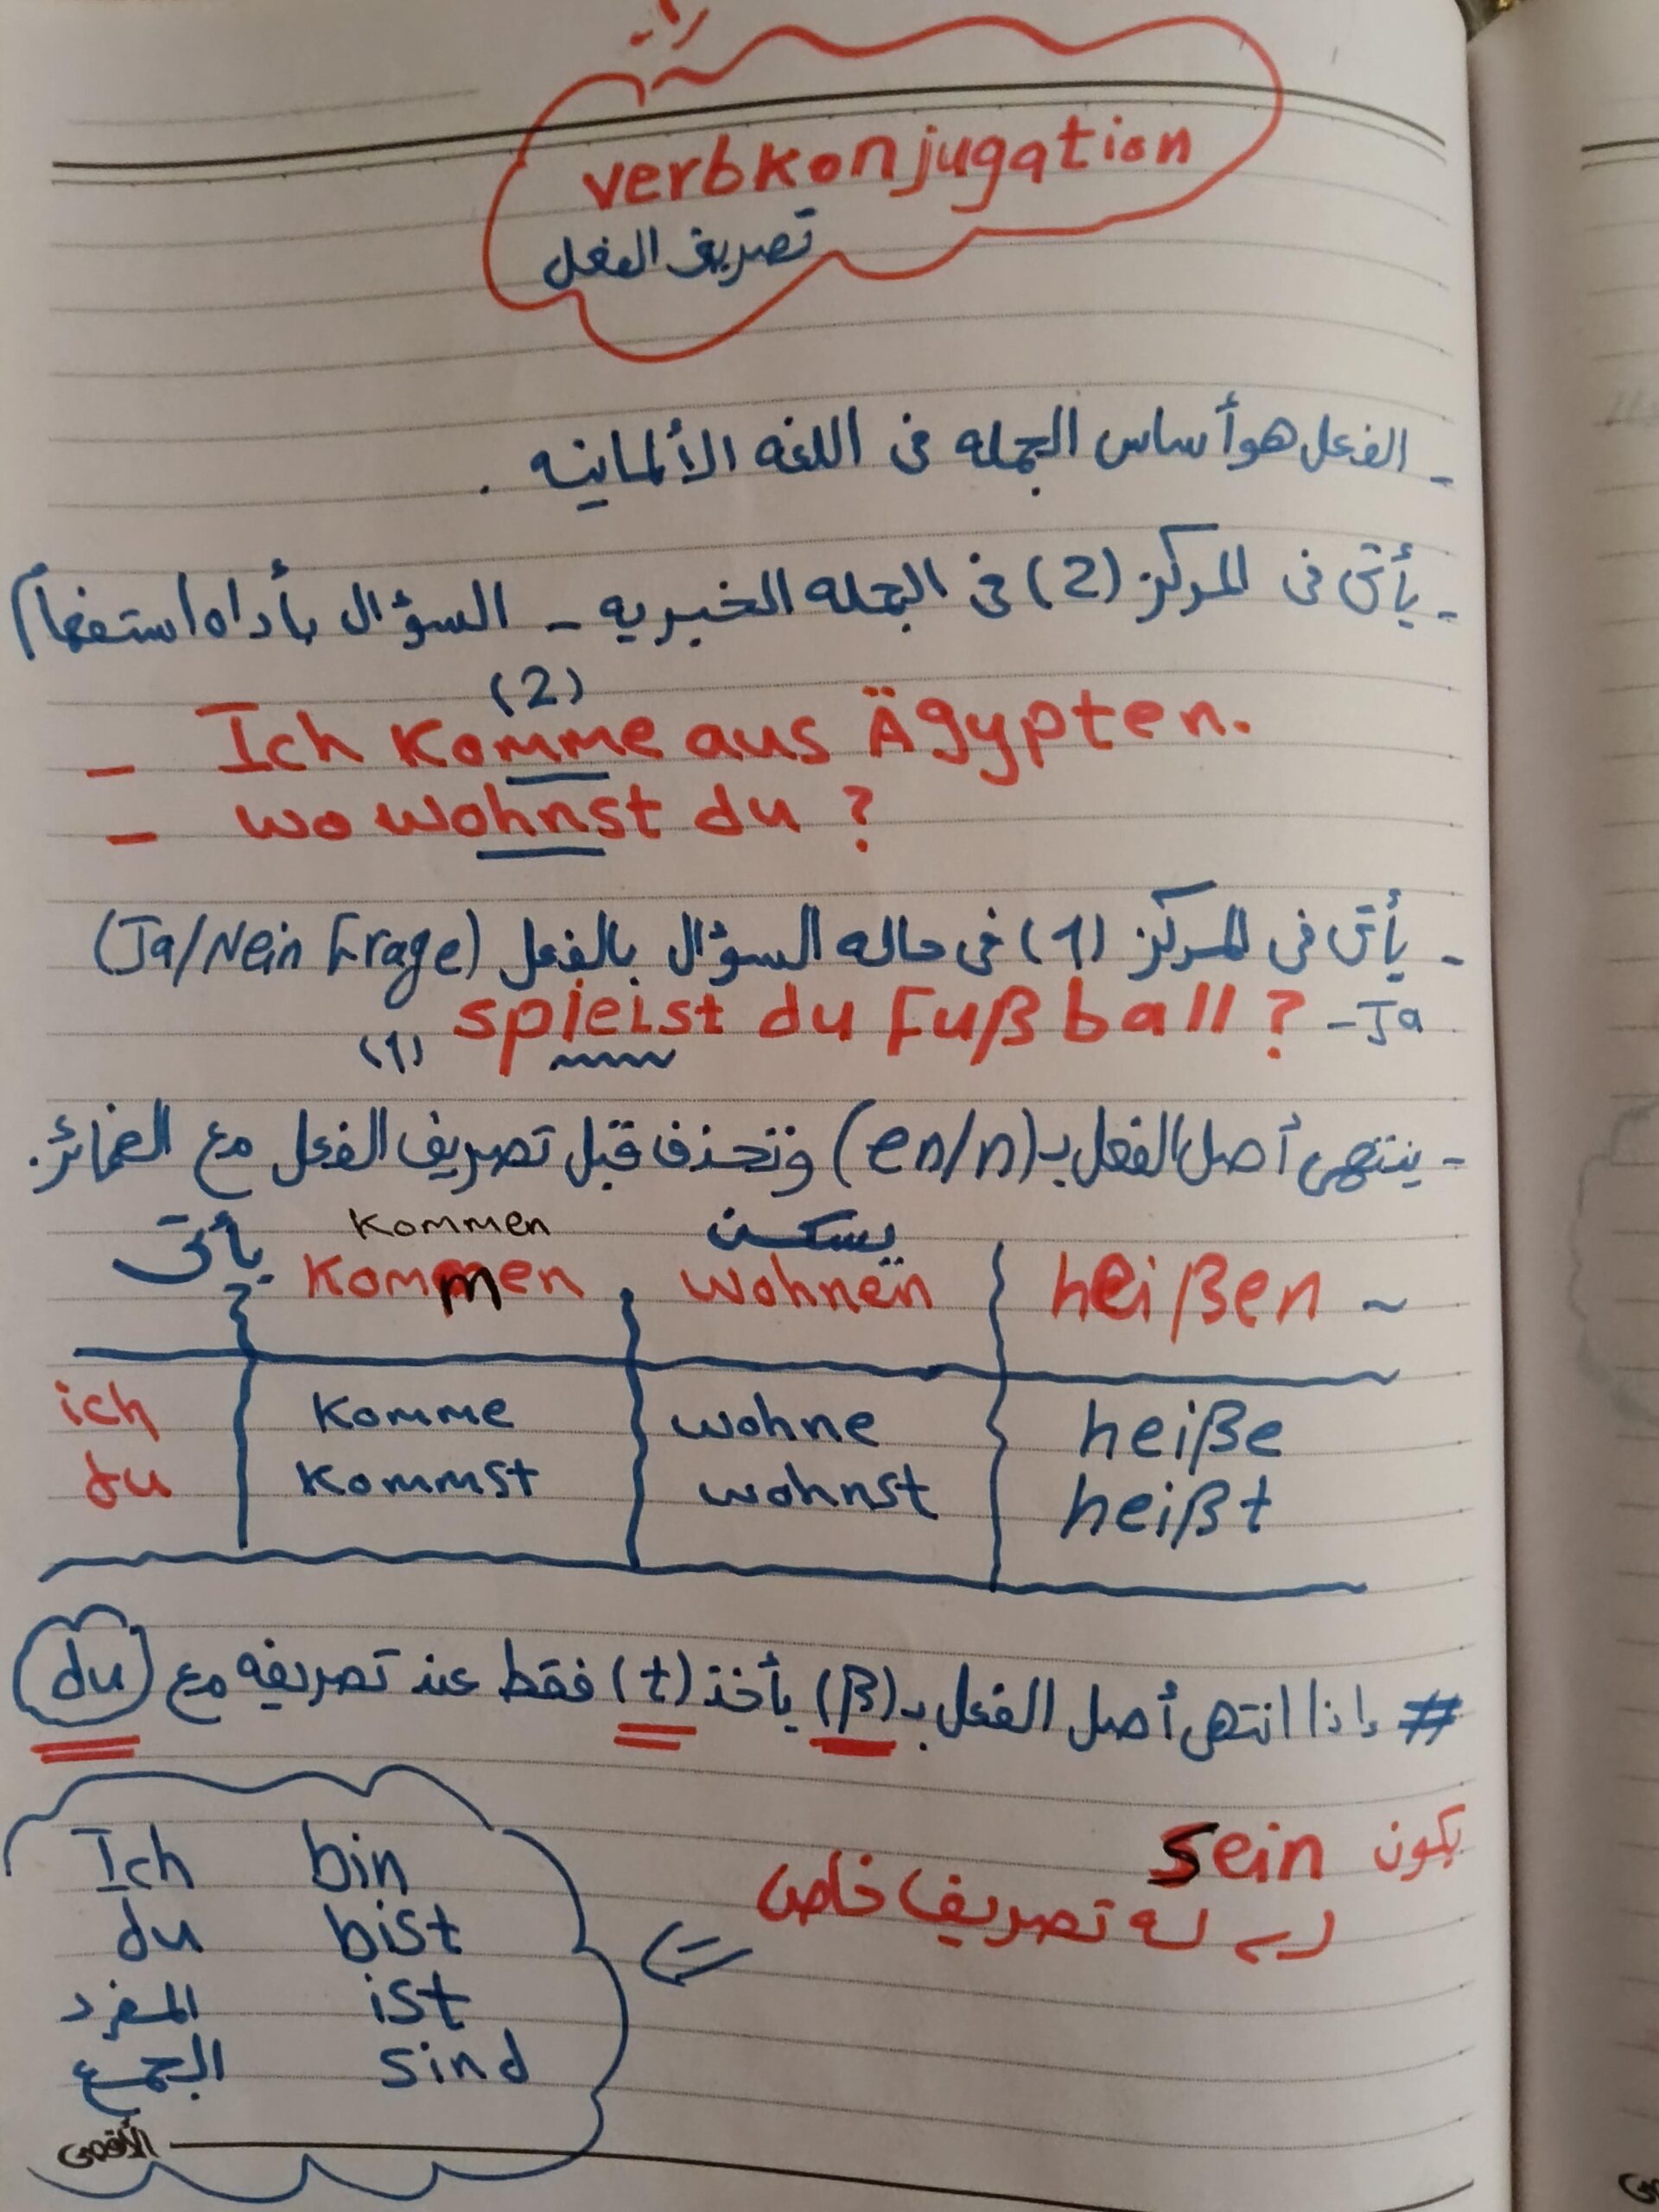 verbkonjugation
تصريف الفعل
- الفعل هو أساس الجمله فى اللغه الألمانيه .
- يأتى فى المركز (2) فى الجمله الخبريه - السؤال بأداه استفهام
(2)
- Ich Komme aus Ägypten.
- wo wohnst du ?
- يأتى فى المركز (1) فى حاله السؤال بالفعل (Ja/Nein Frage)
(1) spleist du Fußball ? - Ja
- ينتهى أصل الفعل بـ (en/n) وتحذف قبل تصريف الفعل مع الضمائر.
يأتى Kommen يسكن
Kommen wohnen heißen ~
ich Komme wohne heiße
du Kommst wohnst heißt
# إذا انتهى أصل الفعل بـ (ß) يأخذ (t) فقط عند تصريفه مع (du)
يكون sein
له تصريف خاص
Ich bin
du bist
المفرد ist
الجمع sind
الأقصى